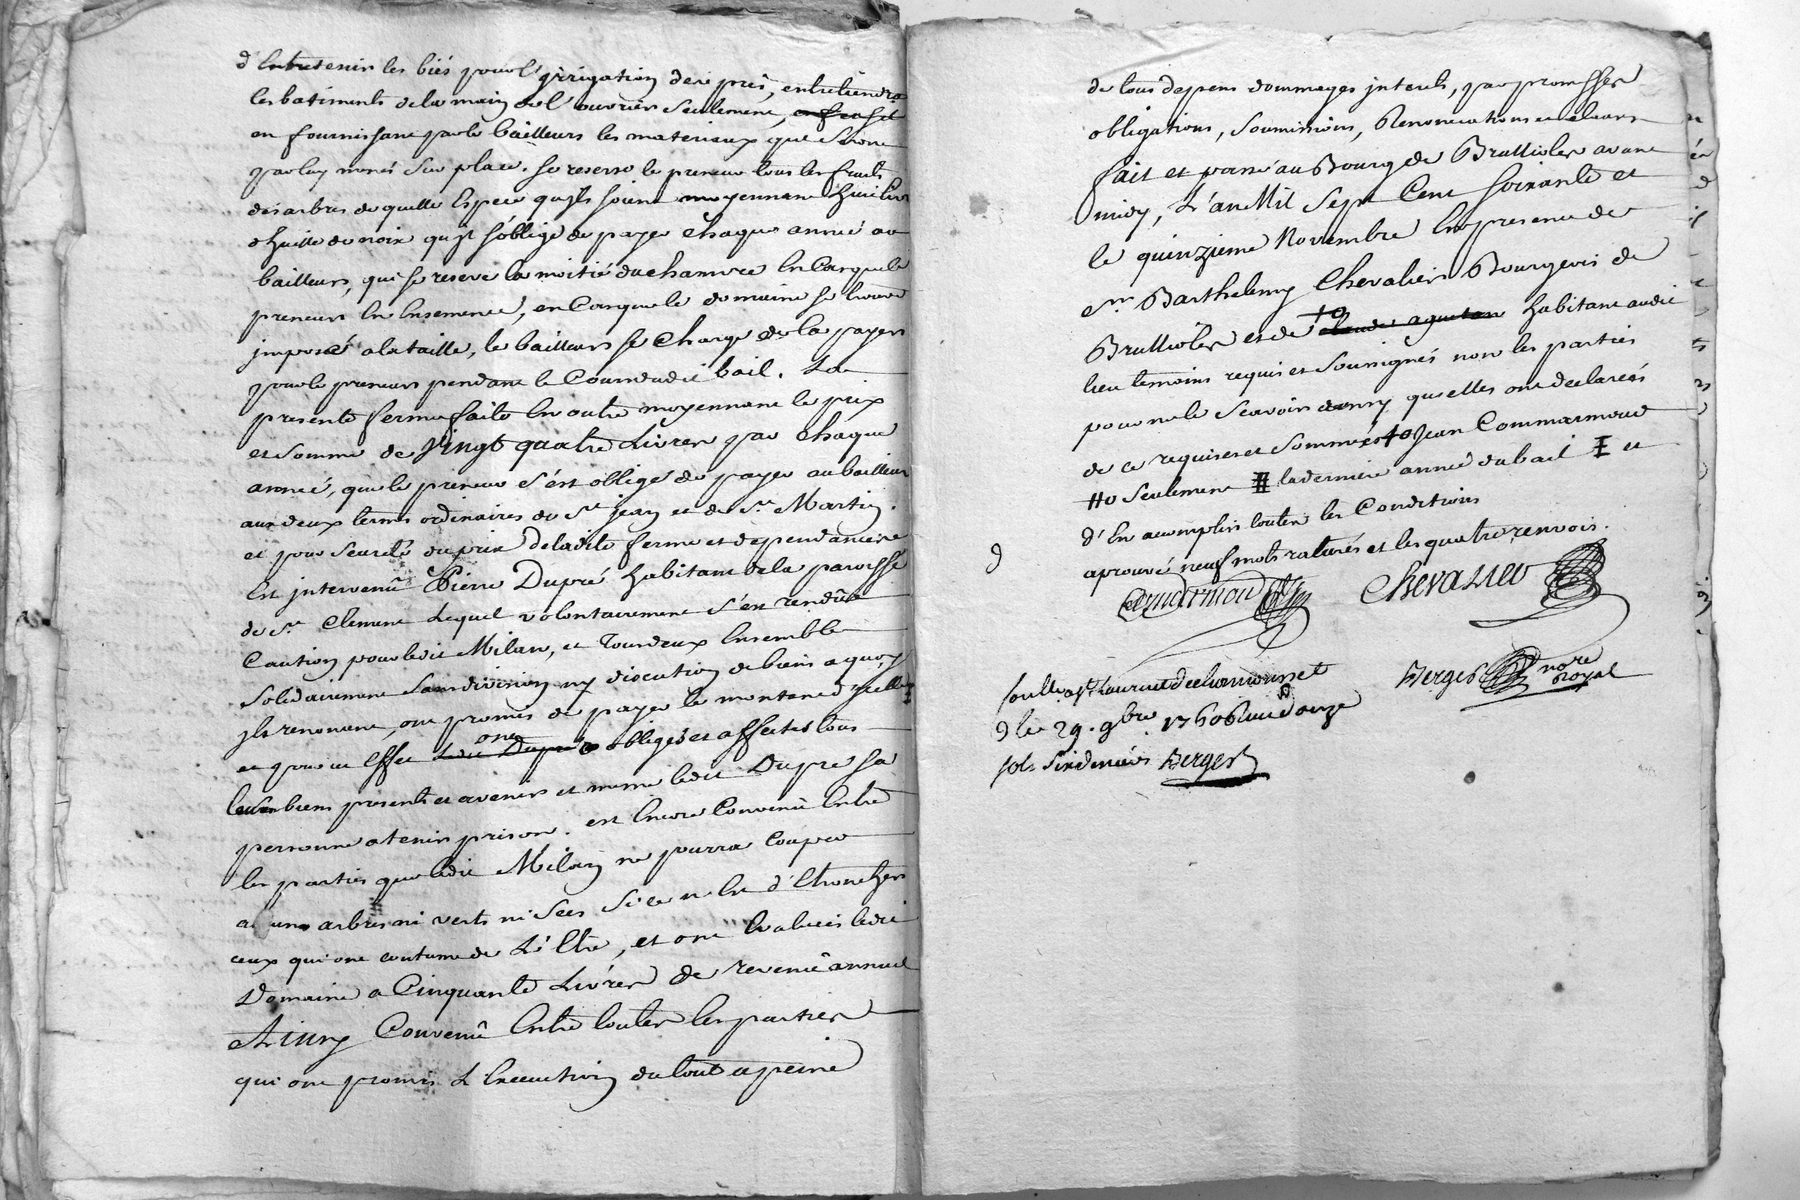 d'Entretenir les biés pour l'jrrigation des prés, entretiendra
les batiments de la main de l'ouvrier seulement,
en fournissant par le bailleur les materiaux que seront
par luy menés sur place. se reserve le preneur tous les fruits
des arbres de quelle Espece qu'jls soient moyennant huit livres
d'huille de noix qu'jl s'oblige de payer chaque année au
bailleur, qui se reserve la moitié du chanvre En laquelle
preneur En Ensemence, en Cas que le domaine se trouve
jmposé a la taille, le bailleur se Charge de la payer
pour le preneur pendant le Cours dudit bail. La
presente ferme faite En outre moyennant le prix
et somme de Vingt quatre Livres par chaque
année, que le preneur s'est obligé de payer au bailleur
aux deux termes ordinaires de St jean et de St Martin.
et pour seureté du prix de ladite ferme et dependances
Est jntervenû Pierre Dupré habitant de la paroisse
de St Clement Lequel volontairement s'est rendû
Caution pour ledit Milan, et Tous deux Ensemble
solidairement sans division ny discution de biens a quoy
jls renoncent, ont promis de payer le montant d'jcelle
et pour cet Effet ont obligés et affectés tous
leurs biens presents et avenirs et meme ledit Dupré sa
personne a tenir prison. est Encore Convenû Entre
les parties que ledit Milan ne pourra couper
aucuns arbres ni verts ni secs si ce n'est d'Etroncher
ceux qui ont coutume de L'Etre, et ont Evalués ledit
Domaine a Cinquante Livres de revenû annuel
Ainsy Convenû Entre toutes les parties
qui ont promis L'Execution du tout a peine
de tous depens dommages jnterets, par promesses
obligations, soumissions, Renonciations et clauses
fait et passé au Bourg de Brullioles avant
midy, L'an Mil Sept Cent soixante et
le quinzieme Novembre En presence de
Sr. Barthelemy Chevalier Bourgeois de
Brullioles et de to habitant audit
lieu temoins requis et soussignés non les parties
pour ne le scavoir ainsy qu'elles ont declarées
de ce requises et sommées to Jean Commarmond
seulement la derniere année du bail et
d'En acomplir toutes les Conditions
aprouvé neuf mots raturés et les quatre renvois.
Comarmond Chevalier
Berger nore Royal
d le 29. 9bre 1760
sols six deniers Berger